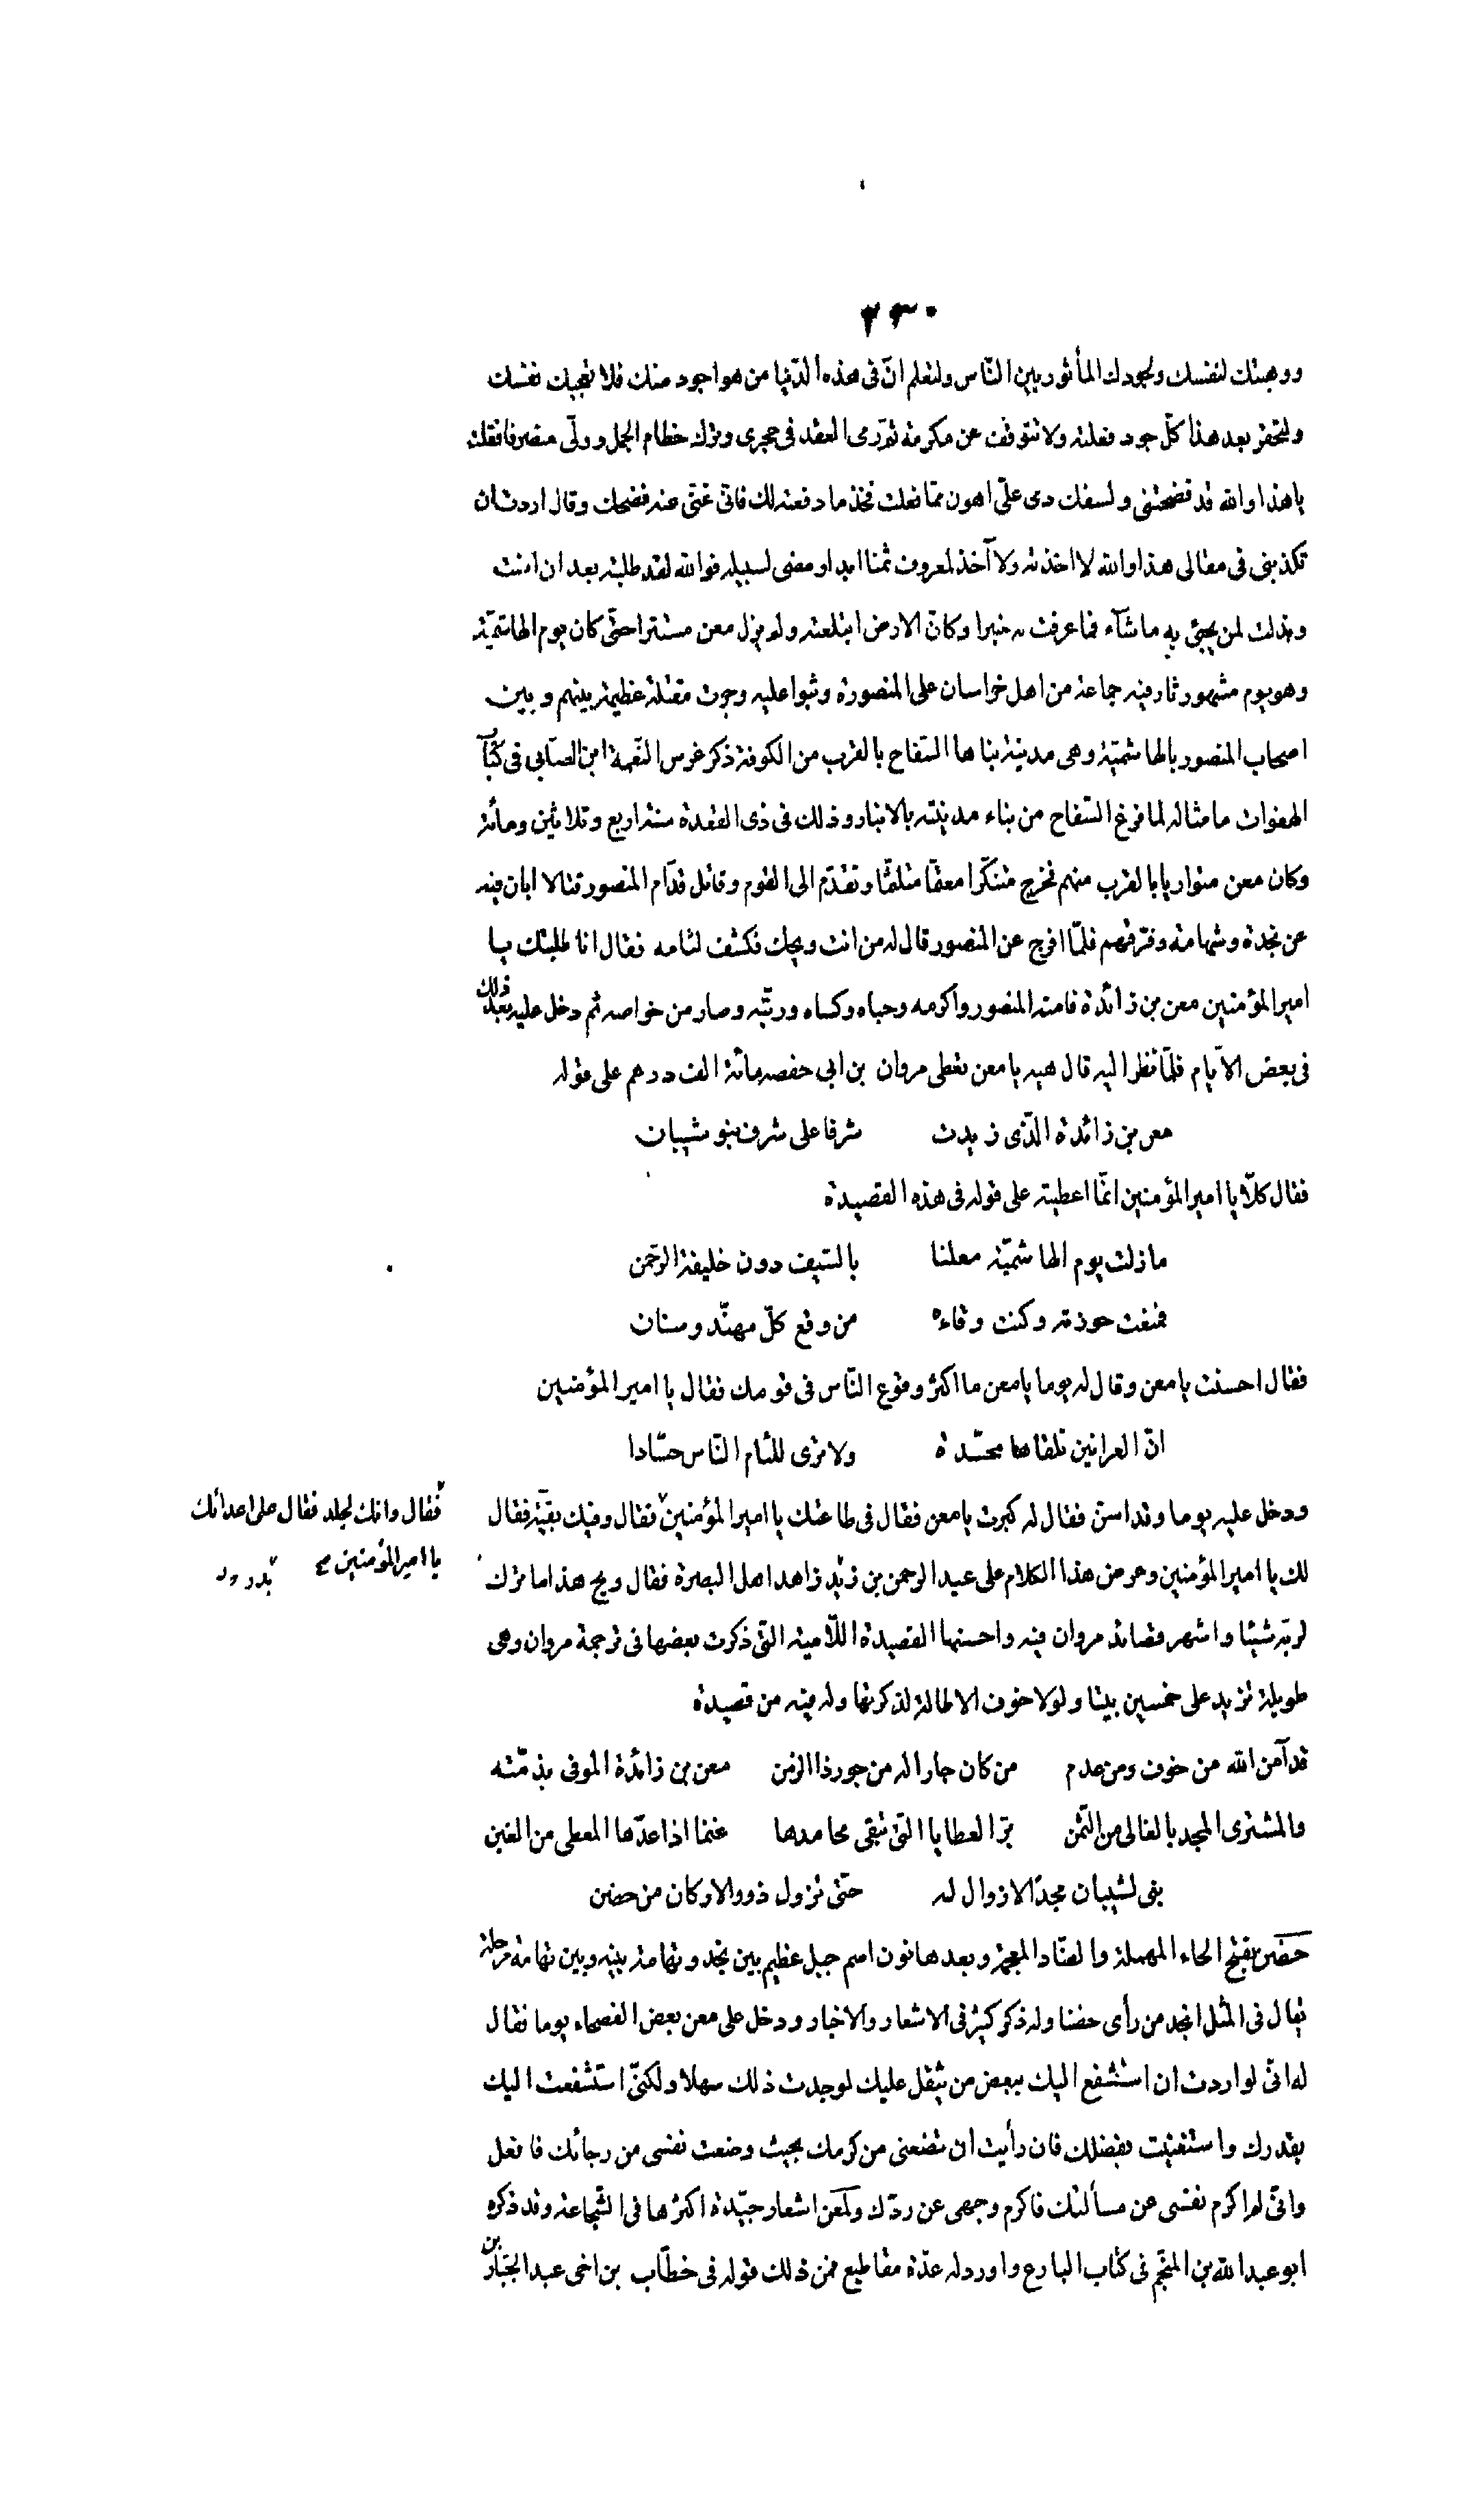 ٢٣٠
ووهبتك لنفسك ولجودك المأثور بين النّاس ولتعلم انّ فى هذه الدّنيا من هو اجود منك فلا تعجبك نفسك
ولتحقر بعد هذا كلّ جود فعلته ولا تتوقف عن مكرمة ثمّ رمى العقد فى حجرى وترك خطام الجمل وولّى منصرفا فقلت
يا هذا والله قد فضحتنى ولسفك دمى علىّ اهون ممّا فعلت فخذ ما دفعته لك فانّى غنىّ عنه فضحك وقال اردت ان
تكذبنى فى مقالى هذا والله لا اخذته ولا آخذ لمعروف ثمنا ابدا ومضى لسبيله فوالله لقد طلبته بعد ان امنت
وبذلت لمن يجئ به ما شآء فما عرفت له خبرا وكانّ الارض ابتلعته ولم يزل معن مستترا حتّى كان يوم الهاشميّة
وهو يوم مشهور ثار فيه جماعة من اهل خراسان على المنصورة وثبوا عليه وجرت مقتلة عظيمة بينهم وبين
اصحاب المنصور بالهاشميّة وهى مدينة بناها السّفاح بالقرب من الكوفة ذكر غرس النّعمة ابن الصّابى فى كتاب
الهفوات ما مثاله لما فرغ السّفاح من بناء مدينته بالانبار وذلك فى ذى القعدة سنة اربع وثلاثين ومائة
وكان معن متواريا بالقرب منهم فخرج متنكّرا معتمّا متلثّما وتقدّم الى القوم وقاتل قدّام المنصور قتالا ابان فيه
عن نجدة وشهامة وفرّقهم فلمّا افرج عن المنصور قال له من انت ويحك فكشف لثامه فقال انا طلبتك يا
امير المؤمنين معن بن زائدة فامنه المنصور واكرمه وحباه وكساه ورتّبه وصار من خواصه ثم دخل عليه بعد ذلك
فى بعض الايّام فلمّا نظر اليه قال هيه يا معن تعطى مروان بن ابى حفصه مائة الف درهم على قوله
معن بن زائدة الّذى زيدت شرفا على شرف بنو شيبان
فقال كلّا يا امير المؤمنين انّما اعطيته على قوله فى هذه القصيدة
ما زلت يوم الهاشميّة معلنا بالسّيف دون خليفة الرّحمن
فمنعت حوزته وكنت وقاءه من وقع كلّ مهنّد وسنان
فقال احسنت يا معن وقال له يوما يا معن ما اكثر وقوع النّاس فى قومك فقال يا امير المؤمنين
انّ العرانين تلقاها محسّدة ولا ترى للئام النّاس حسّادا
ودخل عليه يوما وقد اسنّ فقال له كبرت يا معن فقال فى طاعتك يا امير المؤمنين فقال وفيك بقيّة فقال
لك يا امير المؤمنين وعرض هذا الكلام على عبد الرحمن بن زيد زاهد اهل البصرة فقال ويح هذا ما ترك
لربّه شيئا واشهر قصائد مروان فيه واحسنها القصيدة اللّامية الّتى ذكرت بعضها فى ترجمة مروان وهى
طويلة تزيد على خمسين بيتا ولولا خوف الاطالة لذكرتها وله فيه من قصيدة
قد آمن الله من خوف ومن عدم من كان جارا له من جور ذا الزمن معن بن زائدة الموفى بذمّته
والمشترى المجد بالغالى من الثّمن يرى العطايا الّتى تبقى محامدها غنما اذا عدّها المعطى من الغبن
بنى لشيبان مجدًا لا زوال له حتّى تزول ذوو الاركان من حضن
حضن بفتح الحاء المهملة والضّاد المعجمة وبعدها نون اسم جبل عظيم بين نجد وتهامة بينه وبين تهامة مرحلة
يقال فى المثل انجد من رأى حضنا وله ذكر كثير فى الاشعار والاخبار ودخل على معن بعض الفصحاء يوما فقال
له انّى لو اردت ان استشفع اليك ببعض من يثقل عليك لوجدت ذلك سهلا ولكنّى استشفعت اليك
بقدرك واستغنيت بفضلك فان رأيت ان تضعنى من كرمك بحيث وضعت نفسى من رجائك فافعل
وانّى لم اكرم نفسى عن مسألتك فاكرم وجهى عن ردّك ولمعن اشعار جيّدة اكثرها فى الشّجاعة وقد ذكره
ابو عبد الله بن المنجّم فى كتاب البارع واورد له عدّة مقاطيع فمن ذلك قوله فى خطّاب بن اخى عبد الجبّار بن
فقال وانك لجلد فقال على اعدائك
يا امير المؤمنين صح